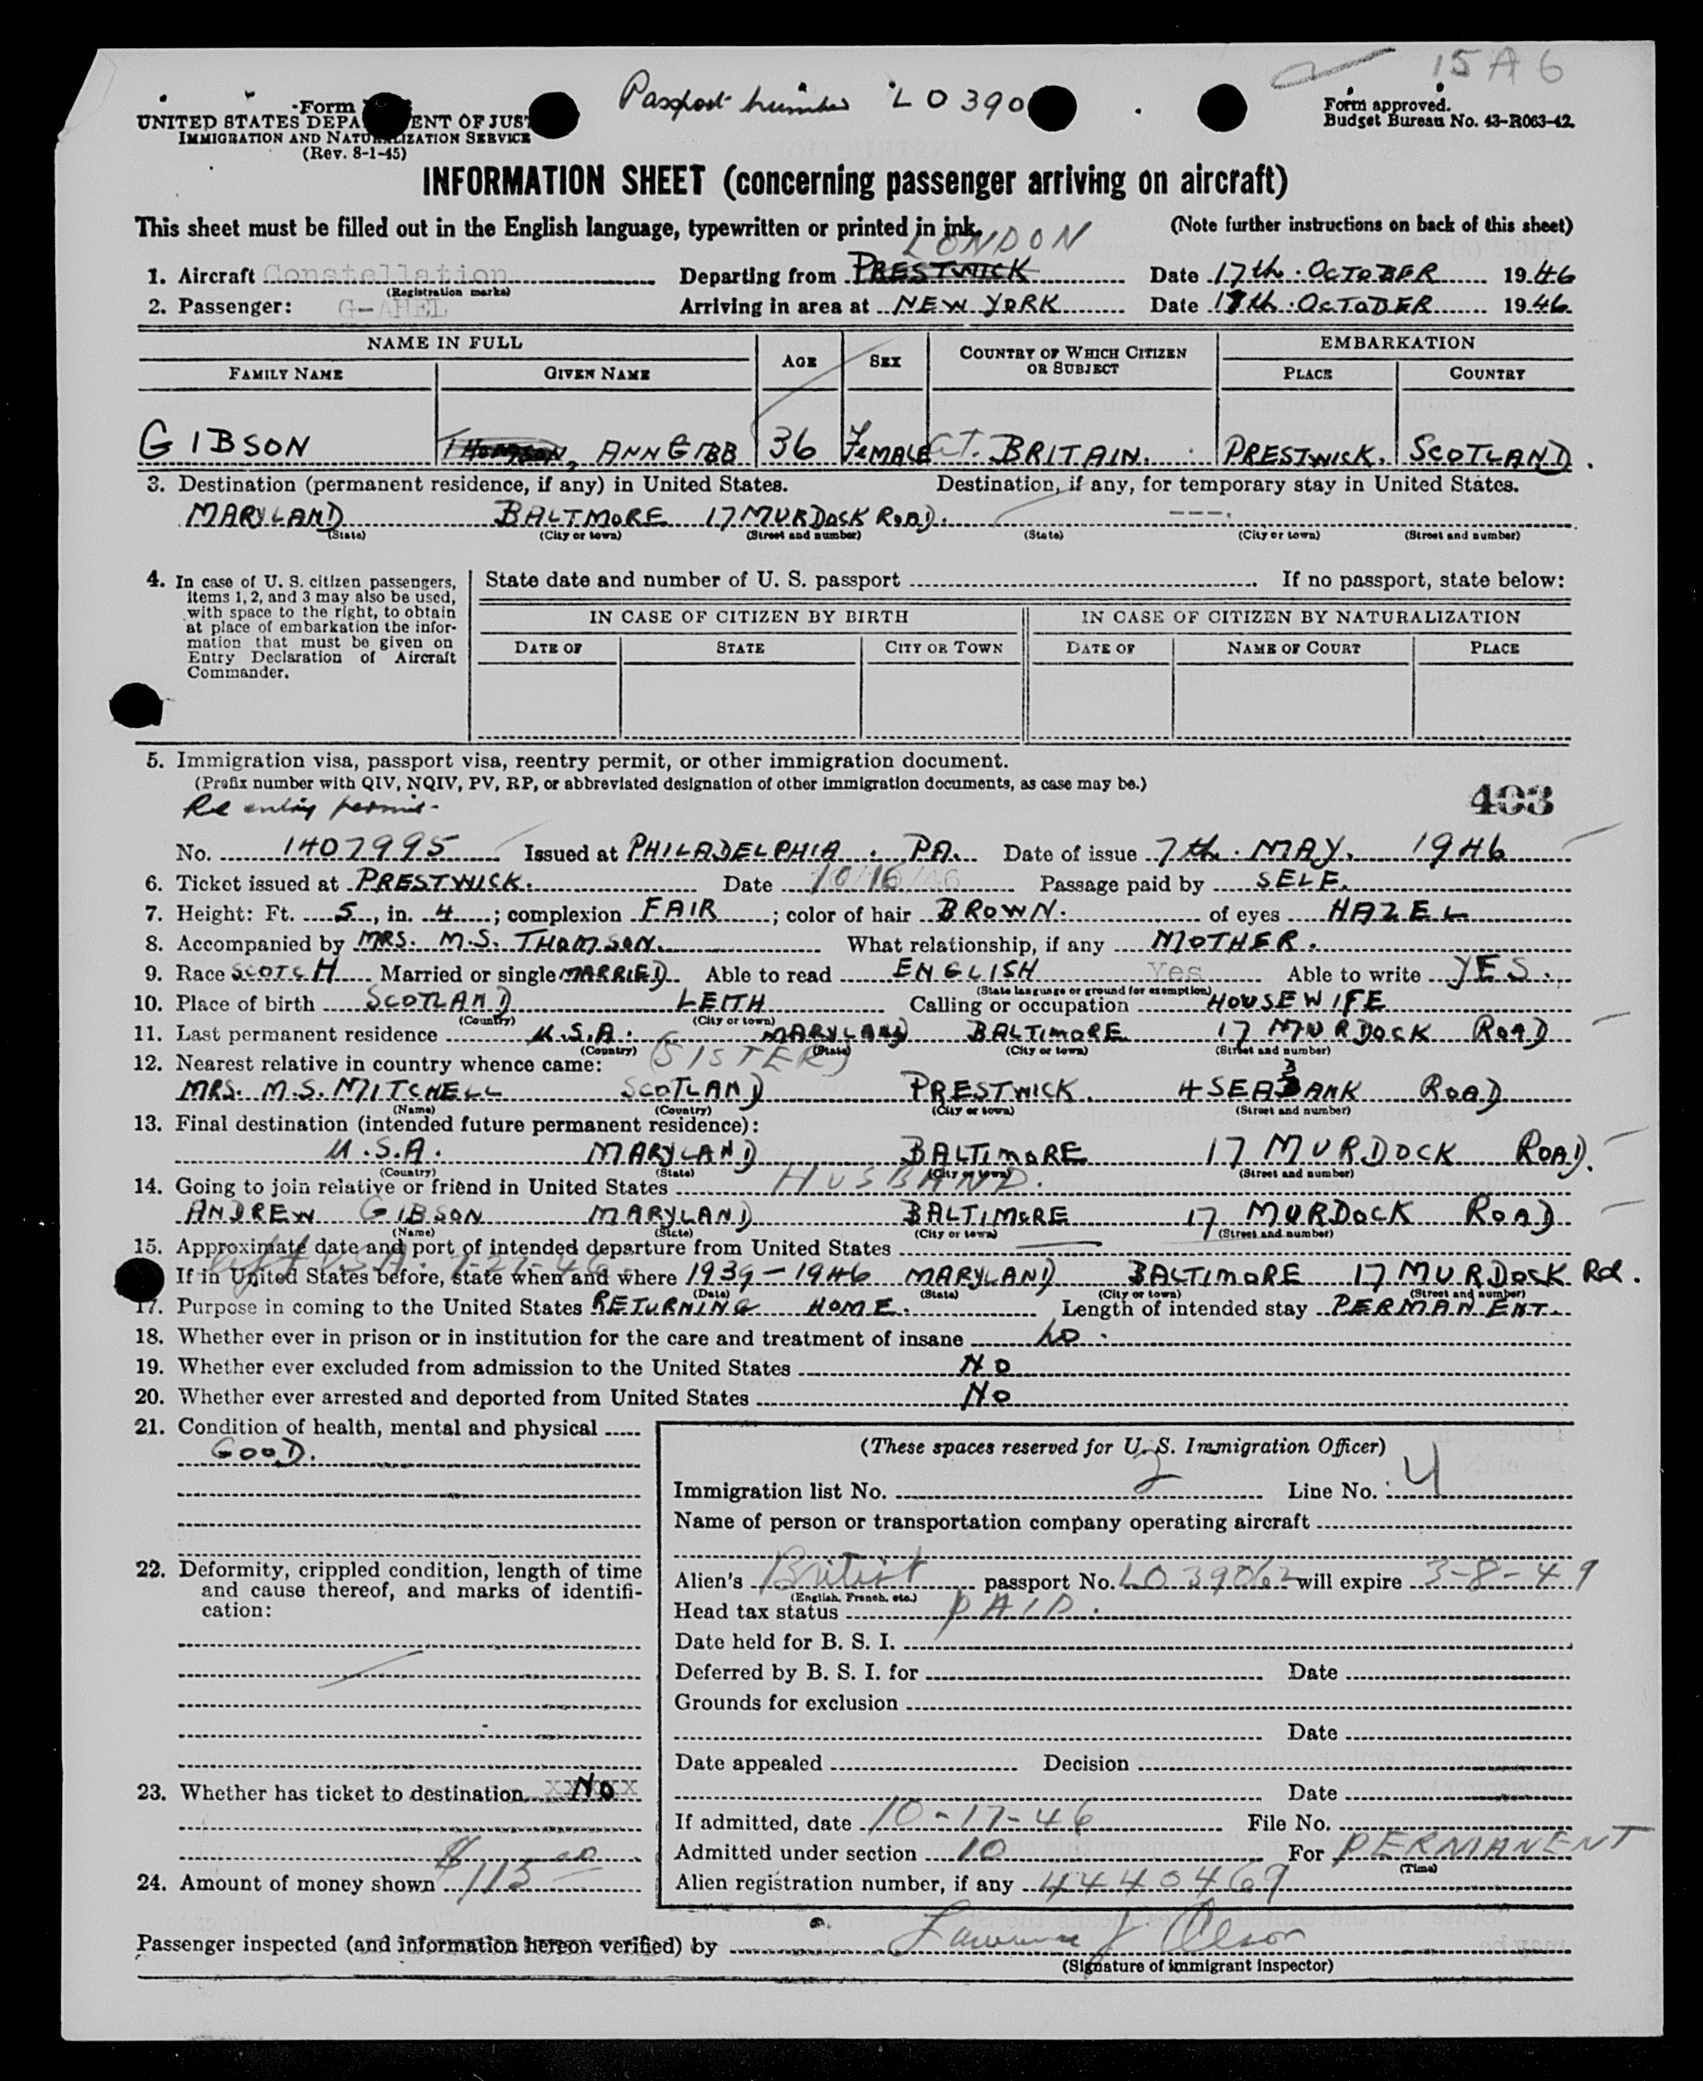 15A6
Passport number LO390
Form
UNITED STATES DEPA ENT OF JUST
IMMIGRATION AND NATURALIZATION SERVICE
(Rev. 8-1-45)
Form approved.
Budget Bureau No. 43-R063-42.
INFORMATION SHEET (concerning passenger arriving on aircraft)
This sheet must be filled out in the English language, typewritten or printed in ink. (Note further instructions on back of this sheet)
LONDON
1. Aircraft Constellation Departing from PRESTWICK Date 17th. OCTOBER 1946
(Registration marks)
2. Passenger: G-AHEL Arriving in area at NEW YORK Date 18th. OCTOBER 1946.
NAME IN FULL AGE SEX COUNTRY OF WHICH CITIZEN OR SUBJECT EMBARKATION
FAMILY NAME GIVEN NAME PLACE COUNTRY
GIBSON THOMSON, ANN GIBB 36 FEMALE GT. BRITAIN. PRESTWICK. SCOTLAND.
3. Destination (permanent residence, if any) in United States. Destination, if any, for temporary stay in United States.
MARYLAND BALTMORE 17 MURDOCK ROAD. ---.
(State) (City or town) (Street and number) (State) (City or town) (Street and number)
4. In case of U. S. citizen passengers, items 1, 2, and 3 may also be used, with space to the right, to obtain at place of embarkation the information that must be given on Entry Declaration of Aircraft Commander.
State date and number of U. S. passport If no passport, state below:
IN CASE OF CITIZEN BY BIRTH IN CASE OF CITIZEN BY NATURALIZATION
DATE OF STATE CITY OR TOWN DATE OF NAME OF COURT PLACE
5. Immigration visa, passport visa, reentry permit, or other immigration document.
(Prefix number with QIV, NQIV, PV, RP, or abbreviated designation of other immigration documents, as case may be.)
403
Re entry permit-
No. 1407995 Issued at PHILADELPHIA. PA. Date of issue 7th. MAY. 1946
6. Ticket issued at PRESTWICK. Date 10/16/46 Passage paid by SELF.
7. Height: Ft. 5, in. 4; complexion FAIR; color of hair BROWN. of eyes HAZEL
8. Accompanied by MRS. M.S. THOMSON. What relationship, if any MOTHER.
9. Race SCOTCH Married or single MARRIED Able to read ENGLISH Yes Able to write YES.
(State language or ground for exemption)
10. Place of birth SCOTLAND LEITH Calling or occupation HOUSEWIFE
(Country) (City or town)
11. Last permanent residence U.S.A. MARYLAND BALTIMORE 17 MURDOCK ROAD
(Country) (State) (City or town) (Street and number)
12. Nearest relative in country whence came: (SISTER)
MRS. M.S. MITCHELL SCOTLAND PRESTWICK. 4 SEABANK ROAD
(Name) (Country) (City or town) (Street and number)
13. Final destination (intended future permanent residence):
U.S.A. MARYLAND BALTIMORE 17 MURDOCK ROAD.
(Country) (State) (City or town) (Street and number)
14. Going to join relative or friend in United States HUSBAND.
ANDREW GIBSON MARYLAND BALTIMORE 17 MURDOCK ROAD
(Name) (State) (City or town) (Street and number)
15. Approximate date and port of intended departure from United States
left USA. 7-27-46
If in United States before, state when and where 1939-1946 MARYLAND BALTIMORE 17 MURDOCK Rd.
(Date) (State) (City or town) (Street and number)
17. Purpose in coming to the United States RETURNING HOME. Length of intended stay PERMANENT.
18. Whether ever in prison or in institution for the care and treatment of insane no.
19. Whether ever excluded from admission to the United States NO
20. Whether ever arrested and deported from United States NO
21. Condition of health, mental and physical
GOOD.
22. Deformity, crippled condition, length of time and cause thereof, and marks of identification:
23. Whether has ticket to destination XXXXX No
24. Amount of money shown $113.00
(These spaces reserved for U. S. Immigration Officer)
Immigration list No. 2 Line No. 4
Name of person or transportation company operating aircraft
Alien's British passport No. LO 39062 will expire 3-8-49
(English, French, etc.)
Head tax status PAID.
Date held for B. S. I.
Deferred by B. S. I. for Date
Grounds for exclusion
Date
Date appealed Decision
Date
If admitted, date 10-17-46 File No.
Admitted under section 10 For PERMANENT
(Time)
Alien registration number, if any 4440469
Passenger inspected (and information hereon verified) by Lawrence J Olson
(Signature of immigrant inspector)